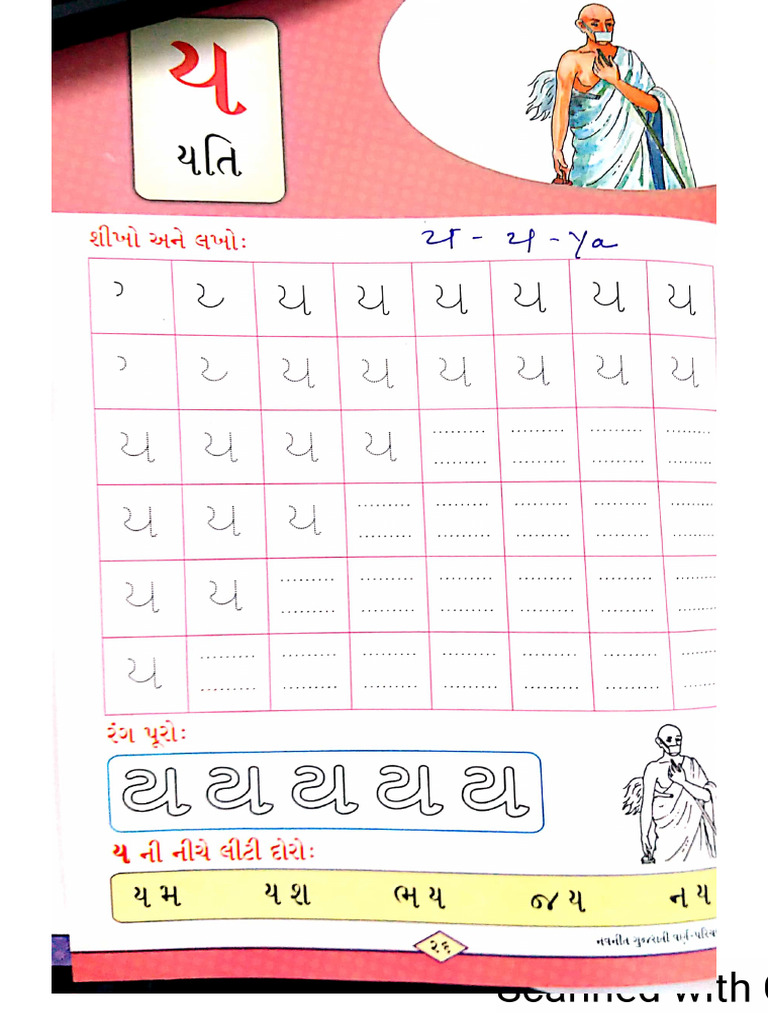 ય
યતિ
શીખો અને લખોઃ
ય - ય - ya
ય ય ય ય ય ય
ય ય ય ય ય ય
ય ય ય ય
ય ય ય
ય ય
ય
રંગ પૂરોઃ
ય ય ય ય ય
ય ની નીચે લીટી દોરોઃ
ય મ ય શ ભ ય જ ય ન ય
૨૬
નવનીત ગુજરાતી વર્ણ-પરિચ
Scanned with